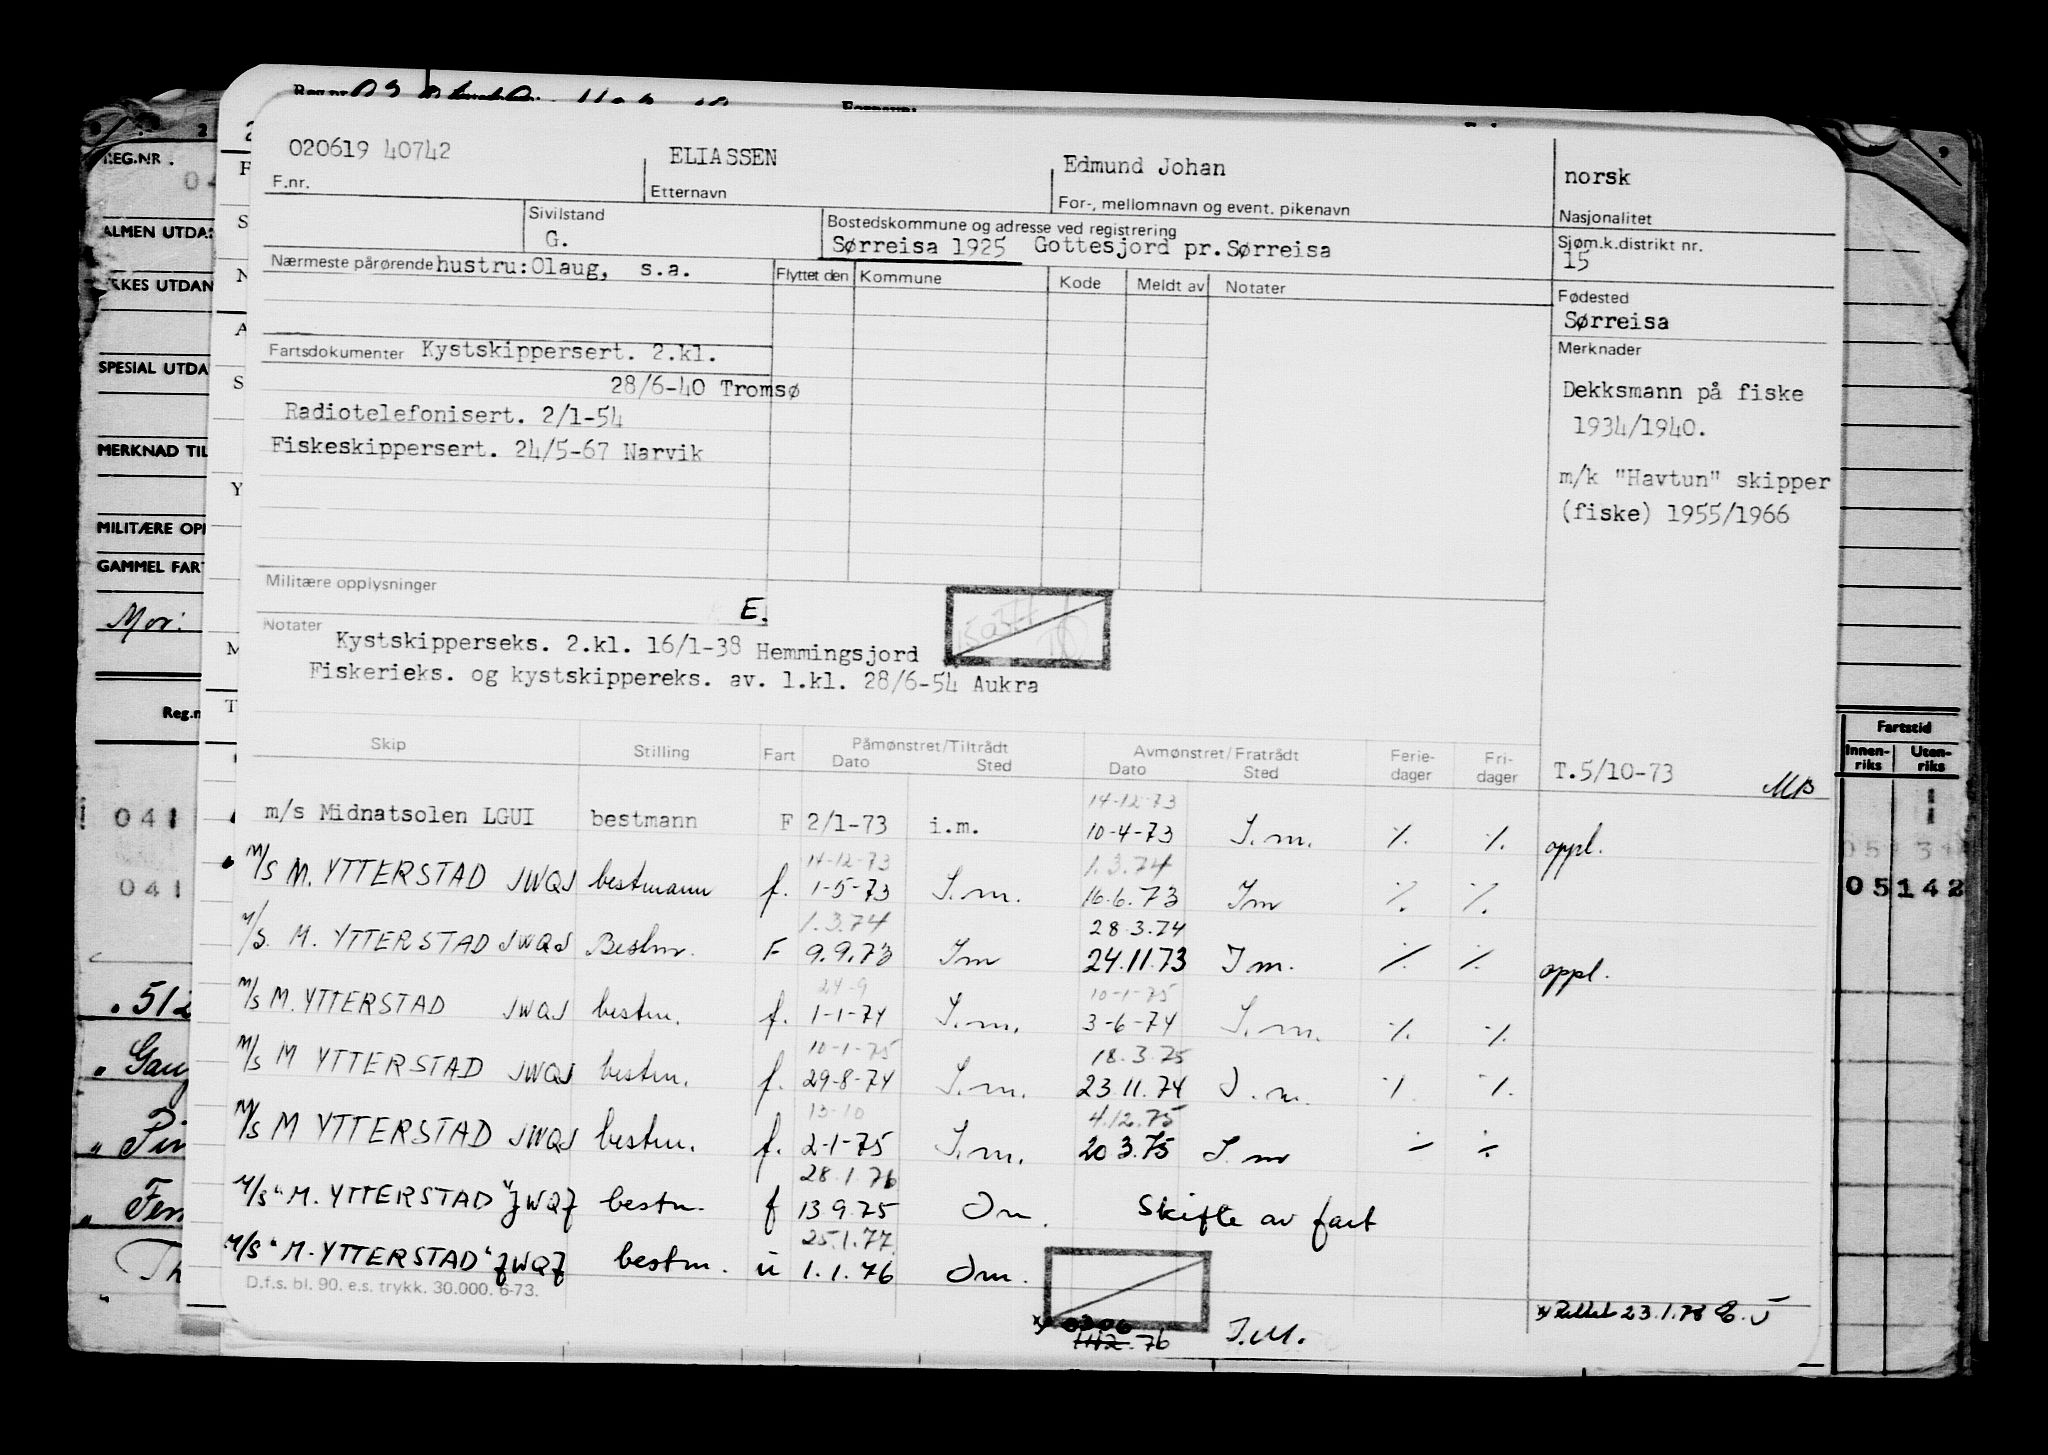 020619 40742 ELIASSEN Edmund Johan norsk
F.nr. Etternavn For-, mellomnavn og event. pikenavn Nasjonalitet
Sivilstand Bostedskommune og adresse ved registrering Sjøm.k.distrikt nr.
G. Sørreisa 1925 Gottesjord pr. Sørreisa 15
Nærmeste pårørende hustru: Olaug, s.a. Flyttet den Kommune Kode Meldt av Notater Fødested
Sørreisa
Fartsdokumenter Kystskippersert. 2.kl. Merknader
28/6-40 Tromsø Dekksmann på fiske
Radiotelefonisert. 2/1-54 1934/1940.
Fiskeskippersert. 24/5-67 Narvik m/k "Havtun" skipper
(fiske) 1955/1966
Militære opplysninger
E.
Notater
Kystskipperseks. 2.kl. 16/1-38 Hemmingsjord
Fiskerieks. og kystskippereks. av. 1.kl. 28/6-54 Aukra
Skip Stilling Fart Påmønstret/Tiltrådt Avmønstret/Fratrådt Ferie- Fri-
Dato Sted Dato Sted dager dager T.5/10-73 MB
14-12-73
m/s Midnatsolen LGUI bestmann F 2/1-73 i.m. 10-4-73 I.m. % % oppl.
14-12-73 1.3.74
M/S M. YTTERSTAD JWQJ bestmann f. 1-5-73 I.m. 16.6.73 Im % %
1.3.74 28.3.74
M/S. M. YTTERSTAD JWQJ Bestm. F 9.9.73 Im 24.11.73 I m. % % oppl.
24-9 10-1-75
M/S M. YTTERSTAD JWQJ bestm. f. 1-1-74 I.m. 3-6-74 I.m. % %
10-1-75 18.3.75
M/S M YTTERSTAD JWQJ bestm. f. 29-8-74 I.m. 23.11.74 I.m. % %
13-10 4.12.75
M/S M YTTERSTAD JWQJ bestm. f. 2-1-75 I.m. 20 3.75 I.m ÷ ÷
28.1.76
M/S "M. YTTERSTAD" JWQJ bestm. f 13 9.75 Im. Skifte av fart
25.1.77.
M/S "M. YTTERSTAD" JWQJ bestm. u 1.1.76 Im.
D.f.s. bl. 90. e.s. trykk. 30.000. 6-73.
x) Rettet 23.1.78 E.J
x) 0306
1112.76 I.M.
REG.NR.
ALMEN UTDA
KES UTDAN
SPESIAL UTDA
MERKNAD TIL
MILITÆRE OP
GAMMEL FAR
Mor:
Reg.n
041
041
.512
Fartstid
Innen- Uten-
riks riks
05142